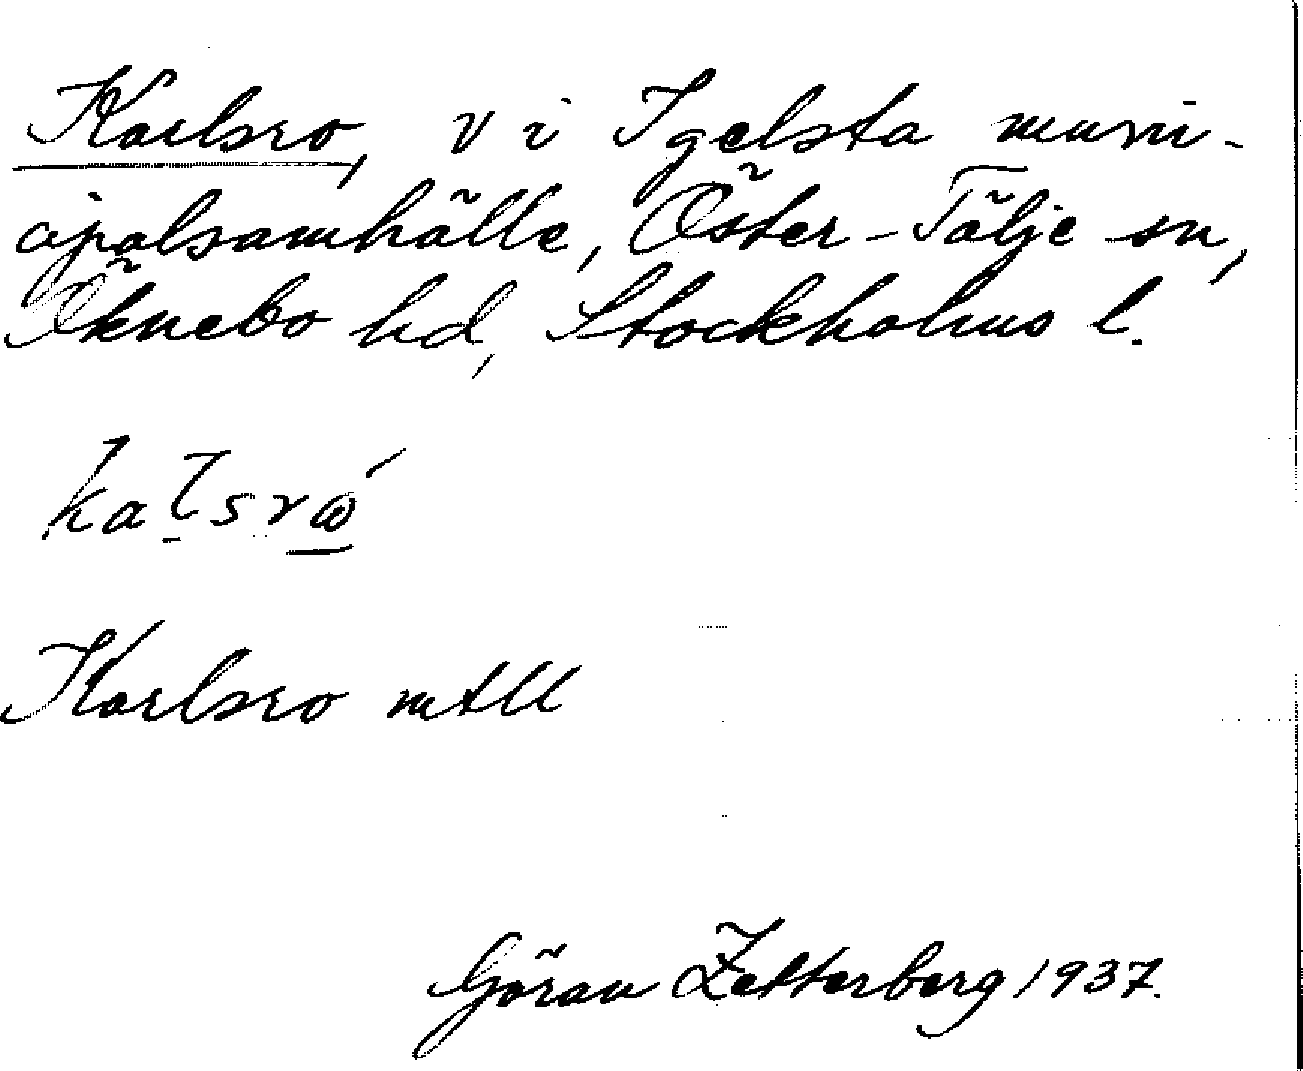 Karlsro, v i Igelsta muni-
cipalsamhälle, Öster-Tälje sn,
Öknebo hd, Stockholms l.
kaḻsrώ̲
Karlsro mtll
Göran Zetterberg 1937.